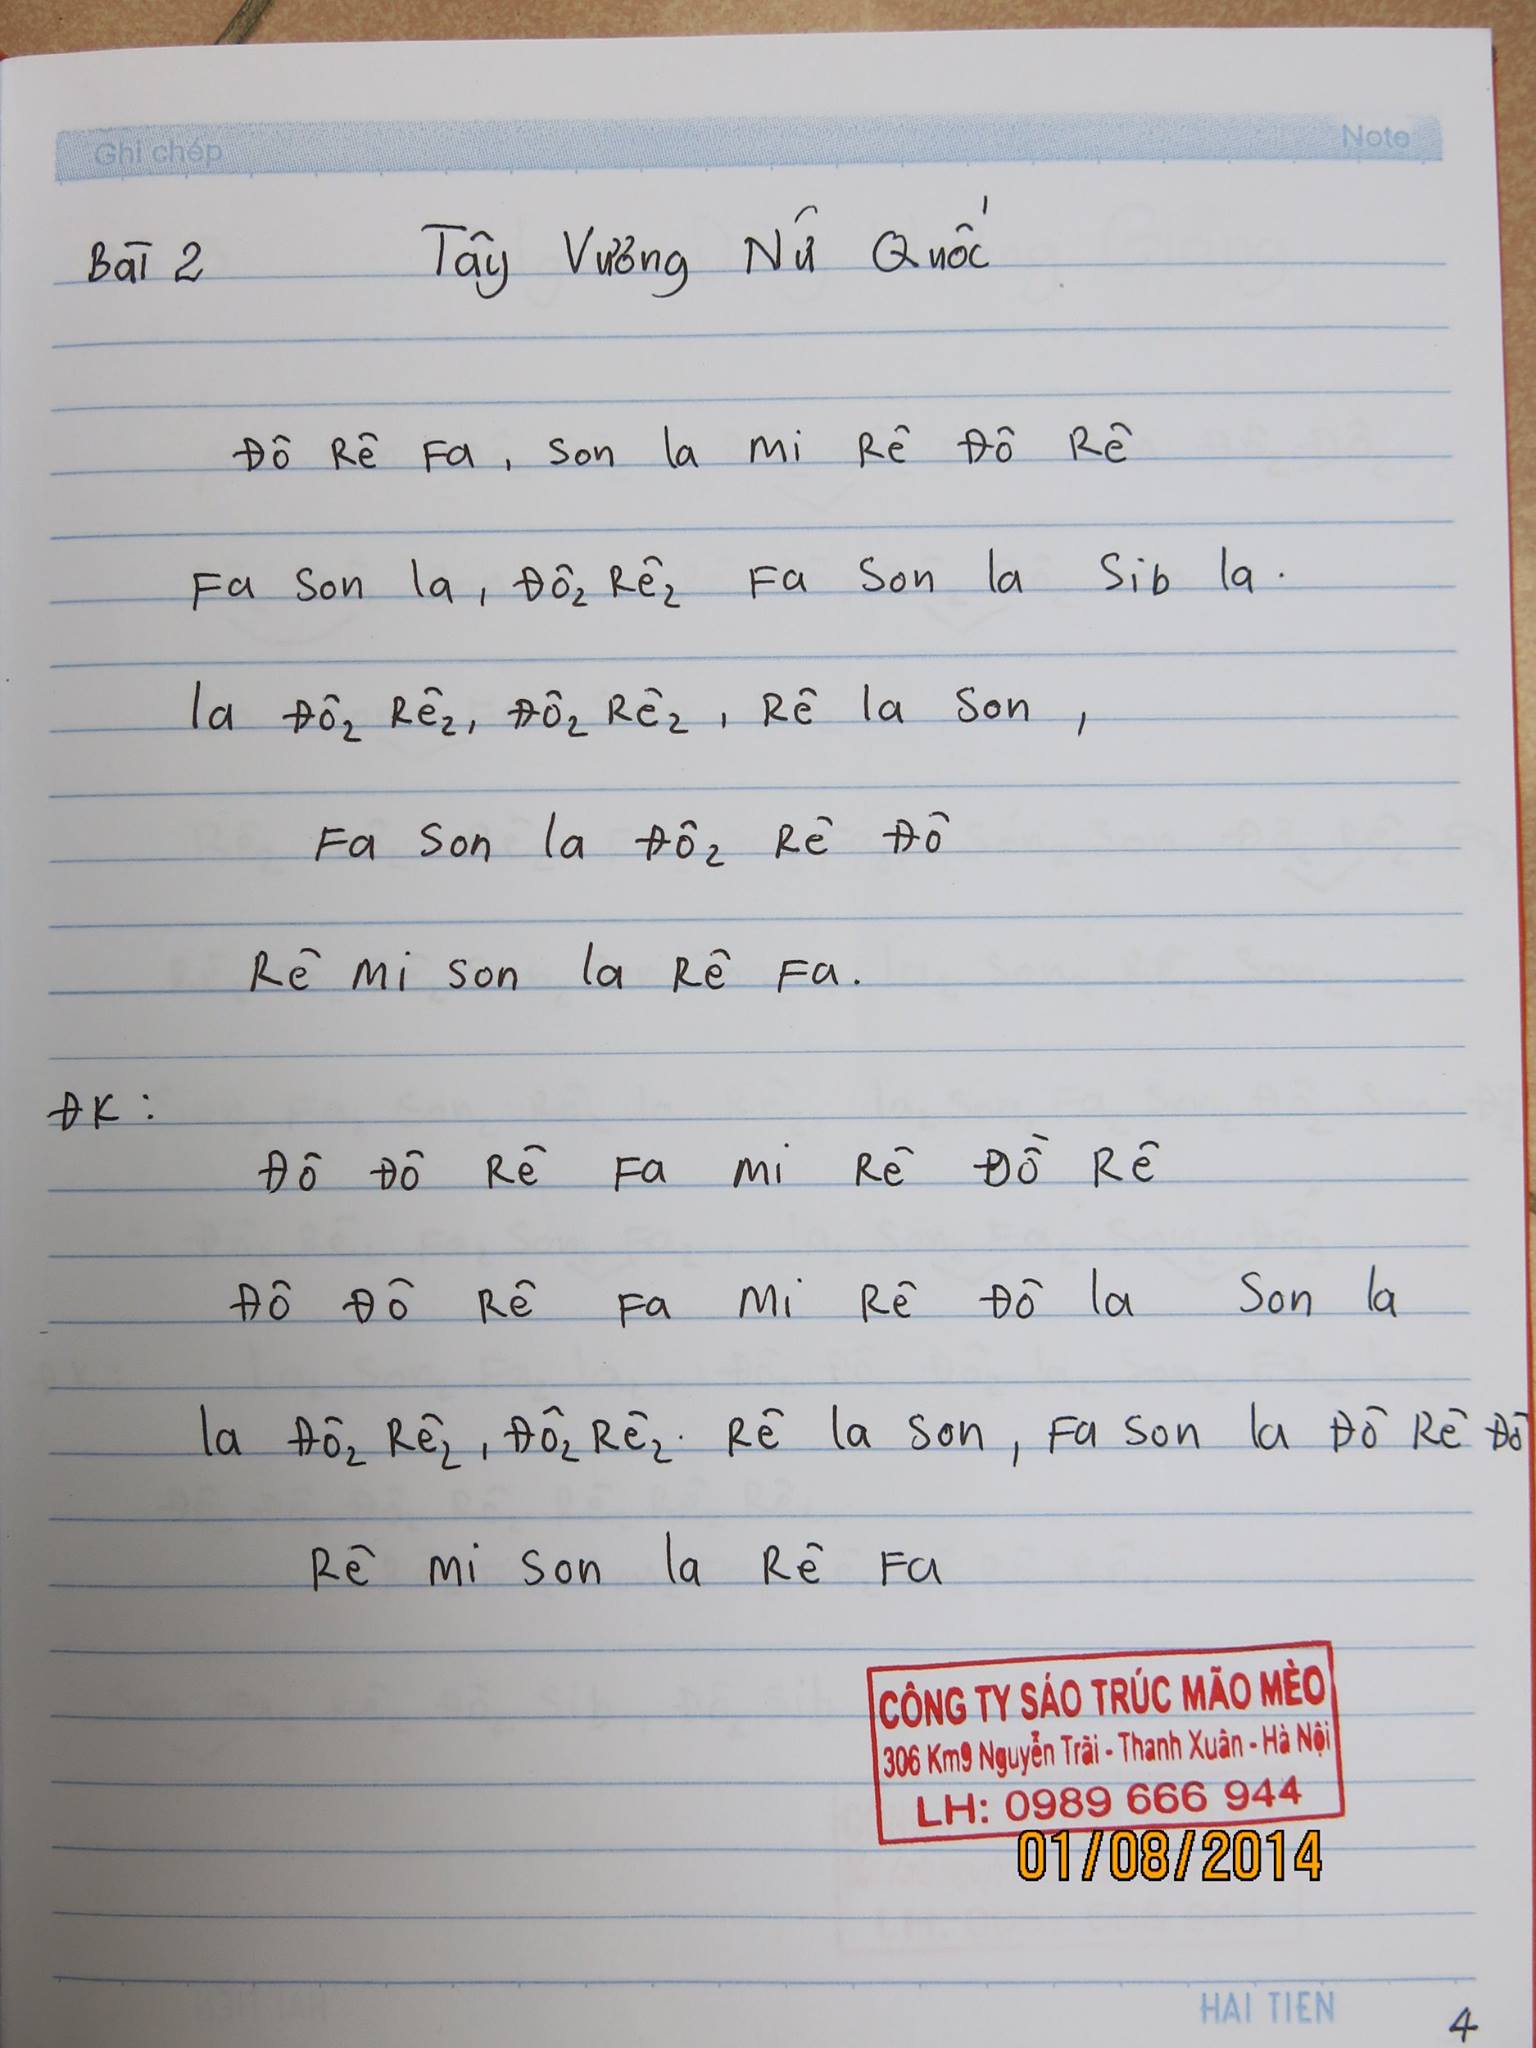 Ghi chép Note
Bài 2 Tây Vương Nữ Quốc
Đô Rê Fa, Son la mi Rê Đô Rê
Fa Son la, Đô2 Rê2 Fa Son la Sib la.
la Đô2 Rê2, Đô2 Rê2, Rê la Son,
Fa Son la Đô2 Rê Đô
Rê mi son la Rê Fa.
ĐK:
Đô Đô Rê Fa mi Rê Đồ Rê
Đô Đô Rê Fa mi Rê Đô la Son la
la Đô2 Rê2, Đô2 Rê2. Rê la son, Fa son la Đô Rê Đô
Rê mi son la Rê Fa
CÔNG TY SÁO TRÚC MÃO MÈO
306 Km9 Nguyễn Trãi - Thanh Xuân - Hà Nội
LH: 0989 666 944
01/08/2014
HAI TIEN
4